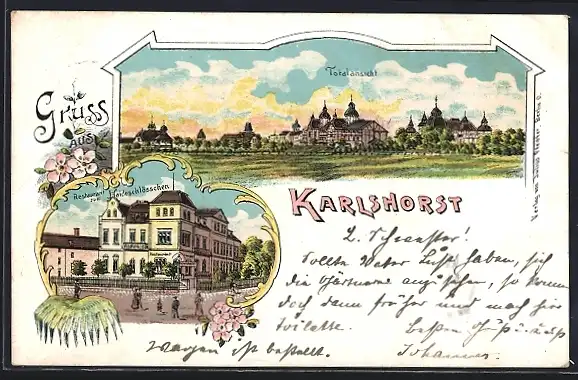 Gruss
aus
Totalansicht
Restaurant
zum Heideschlösschen
KARLSHORST
L. Schwester!
Sollte Vater Lust haben, sich
die Gärtnerei anzusehen, so komm
doch dann früher und mach hier
Toilette. Besten Gruß
Wagen ist bestellt. Johannes
Verlag von Julius Berlin